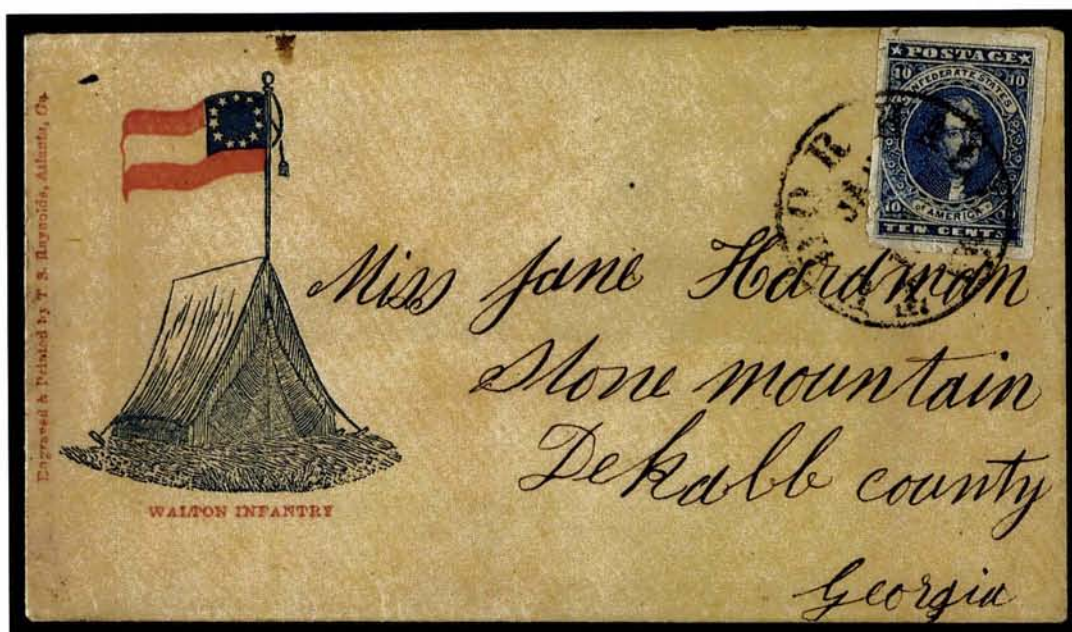 Engraved & Printed by T. S. Reynolds, Atlanta, Ga.
WALTON INFANTRY
POSTAGE
10 10
CONFEDERATE STATES
OF AMERICA
10 10
TEN CENTS
Miss Jane Hardman
Stone mountain
Dekalb county
Georgia